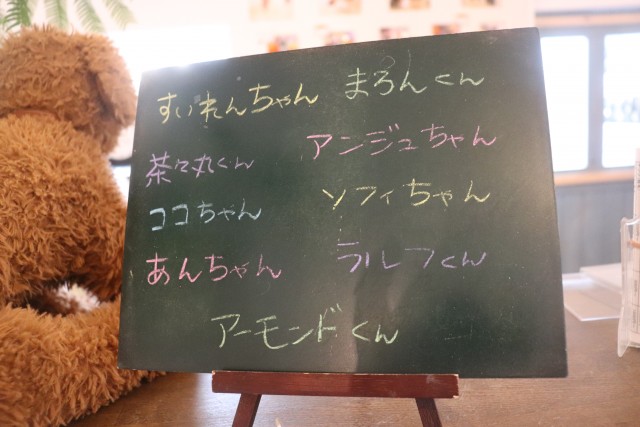 すいれんちゃん まろんくん
茶々丸くん アンジュちゃん
ココちゃん ソフィちゃん
あんちゃん ラルフくん
アーモンドくん